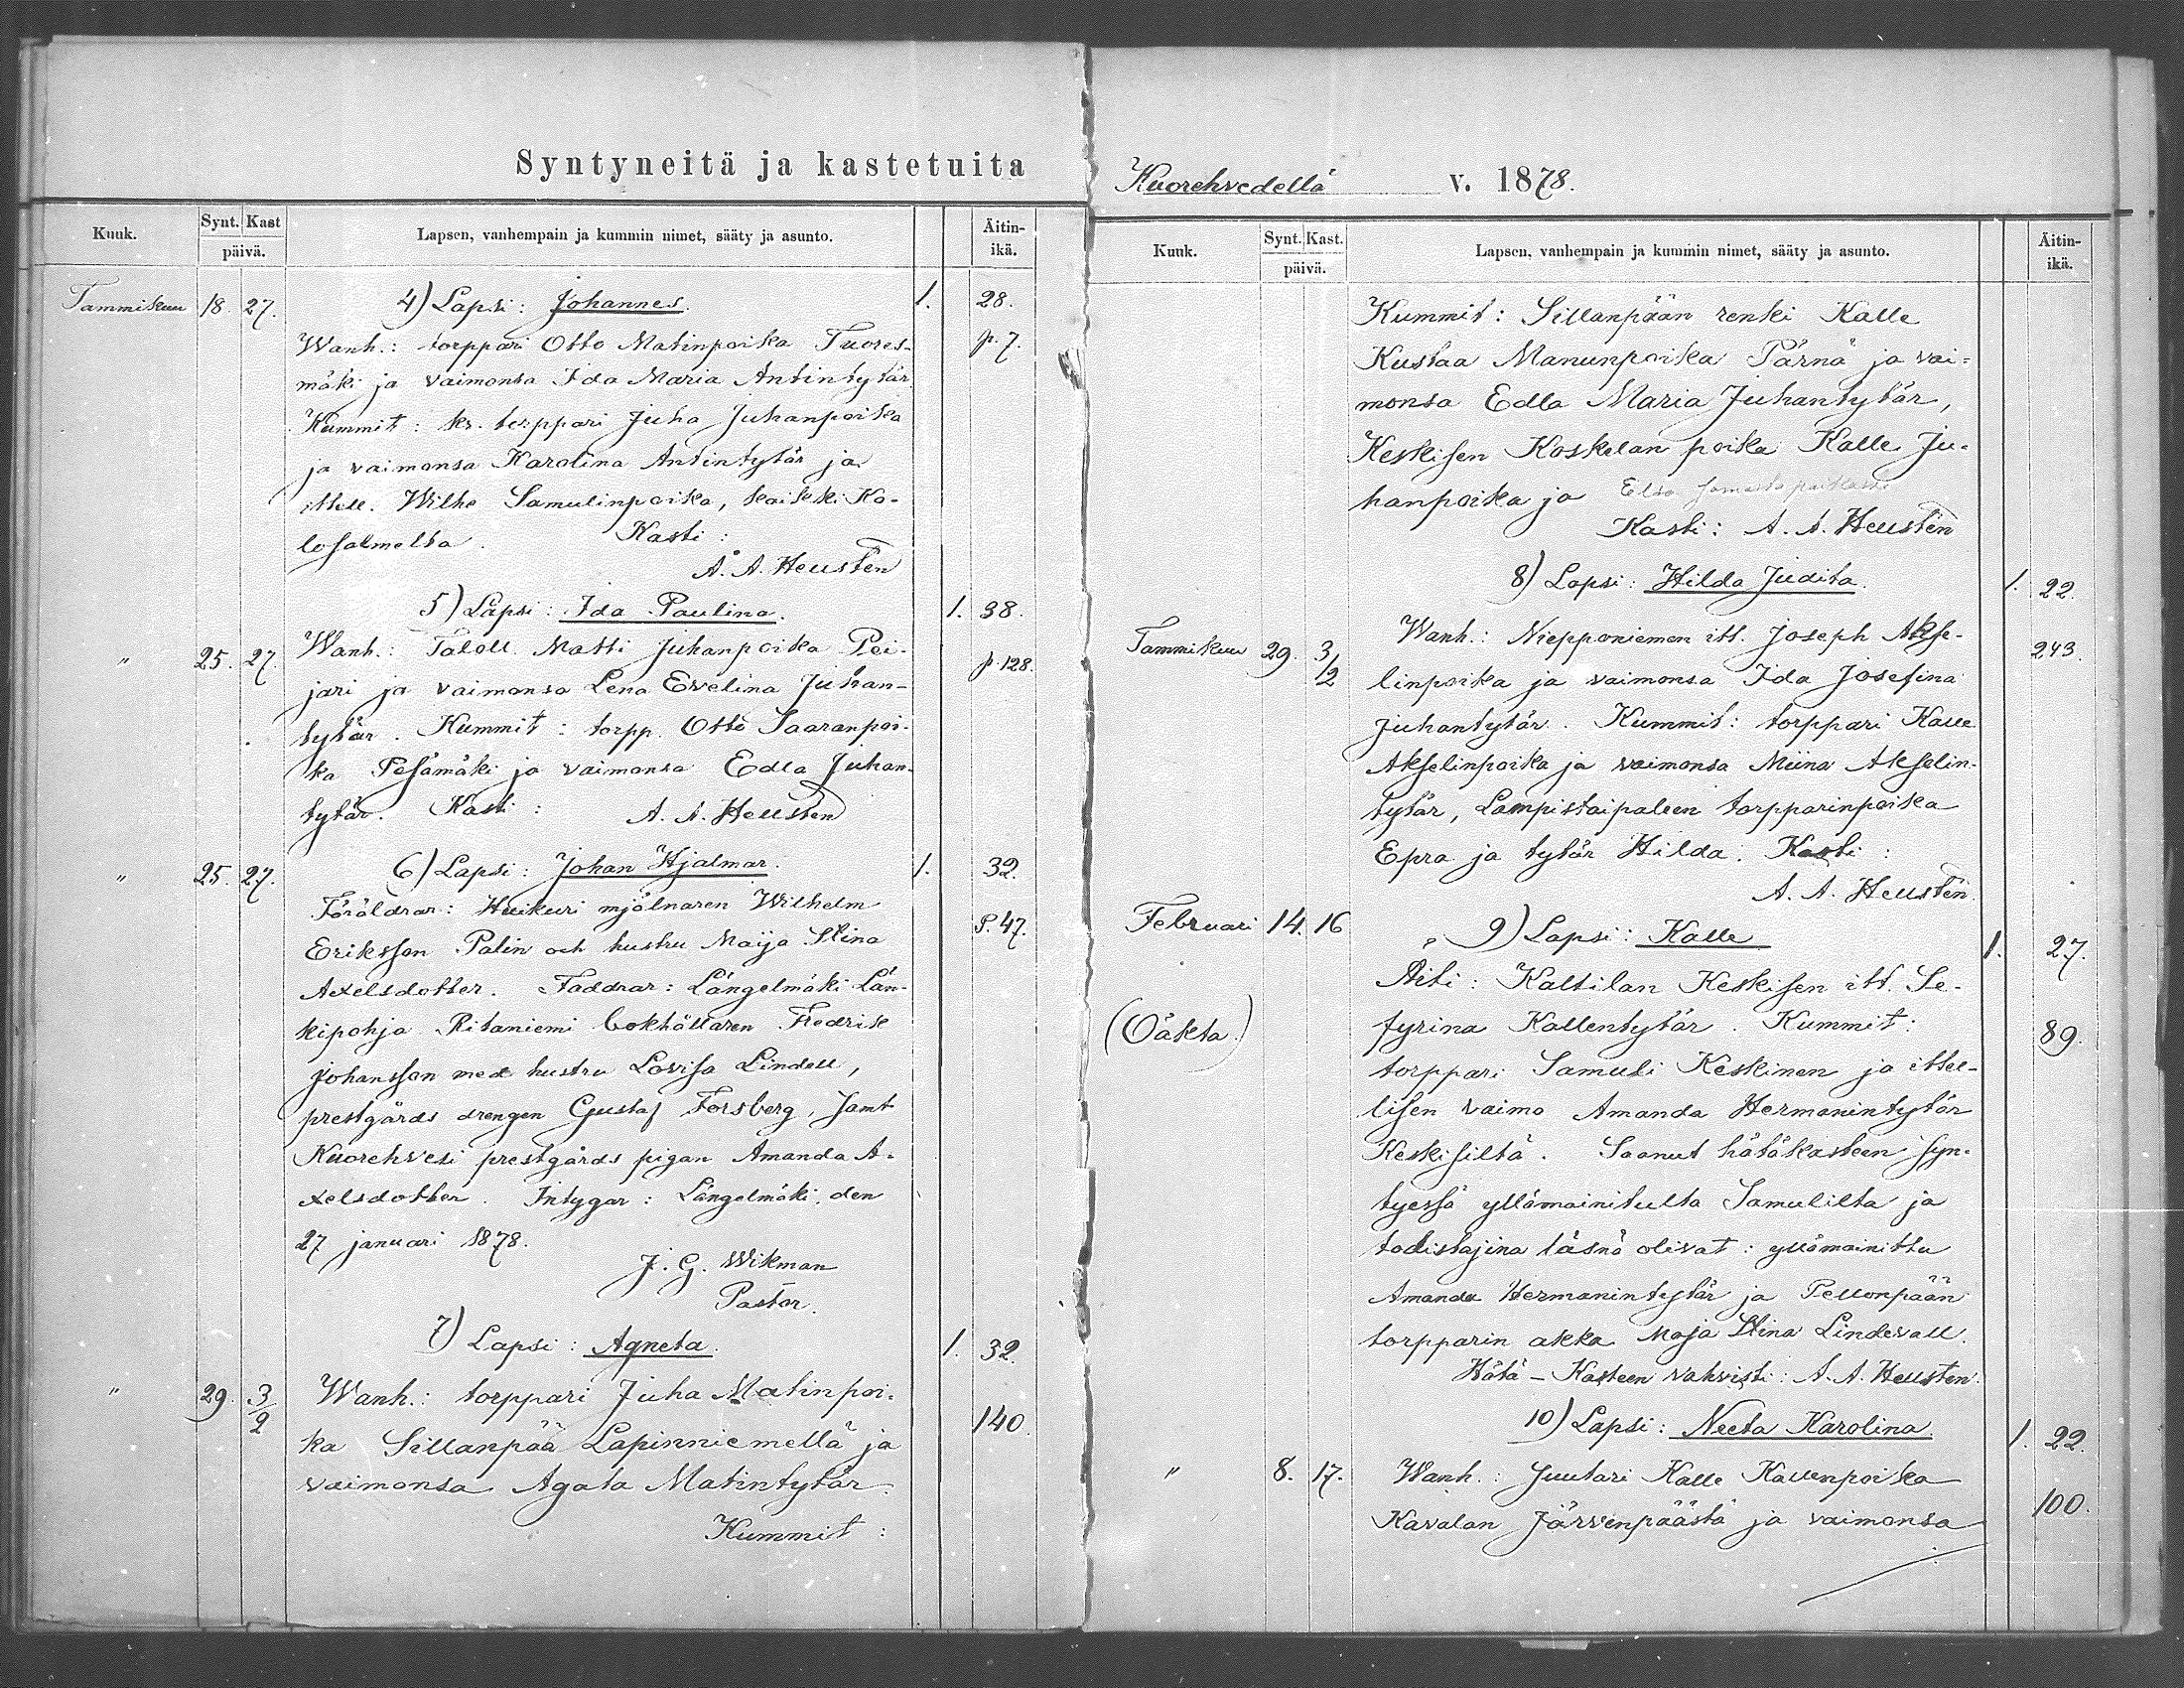 Syntyneitä ja kastetuita
Kuuk. Synt. Kast päivä. Lapsen, vanhempain ja kummin nimet, sääty ja asunto. Äitin-ikä.
Tammikuu 18. 27. 4) Lapsi: Johannes. 1. 28.
Wanh.: torppari Otto Matinpoika Tuores- p. 7.
mäki ja vaimonsa Ida Maria Antintytär.
Kummit: kr. torppari Juha Juhanpoika
ja vaimonsa Karolina Antintytär ja
ittell. Wilhe Samulinpoika, kaikki Ko-
losalmelta. Kasti:
A. A. Heusten
5) Lapsi: Ida Paulina. 1. 38.
" 25. 27. Wanh.: Taloll. Matti Juhanpoika Pei- p. 128.
jari ja vaimonsa Lena Evelina Juhan-
tytär. Kummit: torpp. Otto Saaranpoi-
ka Pesämäki ja vaimonsa Edla Juhan-
tytär. Kasti: A. A. Heusten
" 25. 27. 6) Lapsi: Johan Hjalmar. 1. 32.
Föräldrar: Huikuri mjölnaren Wilhelm
Eriksson Palin och hustru Maija Stina P. 47.
Axelsdotter. Faddrar: Längelmäki Län-
kipohja Ritaniemi bokhållaren Fredrik
Johansson med hustru Lovisa Lindell,
prestgårds drengen Gustaf Forsberg, samt
Kuorehvesi prestgårds pigan Amanda A-
xelsdotter. Intygar: Längelmäki, den
27 januari 1878.
J. G. Wikman
Pastor.
7) Lapsi: Agneta. 1. 32.
" 29. 3/2 Wanh.: torppari Juha Matinpoi-
ka Sillanpää Lapinniemellä ja 140.
vaimonsa Agata Matintytär.
Kummit:
Kuorehvedellä v. 1878.
Kuuk. Synt. Kast. päivä. Lapsen, vanhempain ja kummin nimet, sääty ja asunto. Äitin-ikä.
Kummit: Sillanpään renki Kalle
Kustaa Manunpoika Pärnä ja vai-
monsa Edla Maria Juhantytär,
Keskisen Koskelan poika Kalle Ju-
hanpoika ja Elsa samasta paikasta
Kasti: A. A. Heusten
8) Lapsi: Hilda Judita. 1. 22.
Tammikuu 29. 3/2 Wanh.: Niepponiemen itt. Joseph Akse- 243.
linpoika ja vaimonsa Ida Josefina
Juhantytär. Kummit: torppari Kalle
Akselinpoika ja vaimonsa Miina Akselin-
tytär, Lampistaipaleen torpparinpoika
Epra ja tytär Hilda. Kasti:
A. A. Heusten.
Februari 14. 16 9) Lapsi: Kalle 1. 27.
Äiti: Kaltilan Keskisen itt. Se-
(Oäkta.) fyrina Kallentytär. Kummit: 89.
torppari Samuli Keskinen ja ittel-
lisen vaimo Amanda Hermanintytär
Keskisiltä. Saanut hätäkasteen syn-
tyessä yllämainitulta Samulilta ja
todistajina läsnä olivat: yllämainittu
Amanda Hermanintytär ja Pellonpään
torpparin akka Maja Stina Lindevall.
Hätä-Kasteen vahvisti: A. A. Heusten.
10) Lapsi: Neeta Karolina. 1. 22.
" 8. 17. Wanh.: Suutari Kalle Kallenpoika
Kavalan Järvenpäästä ja vaimonsa 100.